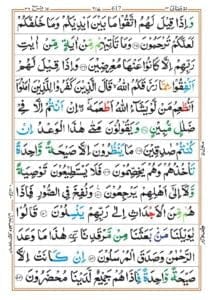 وَاِذَا قِيْلَ لَهُمُ اتَّقُوْا مَا بَيْنَ اَيْدِيْكُمْ وَمَا خَلْفَكُمْ
لَعَلَّكُمْ تُرْحَمُوْنَ وَمَا تَاْتِيْهِمْ مِّنْ اٰيَةٍ مِّنْ اٰيٰتِ
رَبِّهِمْ اِلَّا كَانُوْا عَنْهَا مُعْرِضِيْنَ وَاِذَا قِيْلَ لَهُمْ اَنْفِقُوْا
مِمَّا رَزَقَكُمُ اللّٰهُ قَالَ الَّذِيْنَ كَفَرُوْا لِلَّذِيْنَ اٰمَنُوْٓا
اَنُطْعِمُ مَنْ لَّوْ يَشَآءُ اللّٰهُ اَطْعَمَهٗٓ اِنْ اَنْتُمْ اِلَّا فِيْ
ضَلٰلٍ مُّبِيْنٍ وَيَقُوْلُوْنَ مَتٰى هٰذَا الْوَعْدُ اِنْ
كُنْتُمْ صٰدِقِيْنَ مَا يَنْظُرُوْنَ اِلَّا صَيْحَةً وَّاحِدَةً
تَاْخُذُهُمْ وَهُمْ يَخِصِّمُوْنَ فَلَا يَسْتَطِيْعُوْنَ تَوْصِيَةً
وَّلَآ اِلٰٓى اَهْلِهِمْ يَرْجِعُوْنَ وَنُفِخَ فِي الصُّوْرِ فَاِذَا
هُمْ مِّنَ الْاَجْدَاثِ اِلٰى رَبِّهِمْ يَنْسِلُوْنَ قَالُوْا
يٰوَيْلَنَا مَنْۢ بَعَثَنَا مِنْ مَّرْقَدِنَا هٰذَا مَا وَعَدَ
الرَّحْمٰنُ وَصَدَقَ الْمُرْسَلُوْنَ اِنْ كَانَتْ اِلَّا
صَيْحَةً وَّاحِدَةً فَاِذَا هُمْ جَمِيْعٌ لَّدَيْنَا مُحْضَرُوْنَ